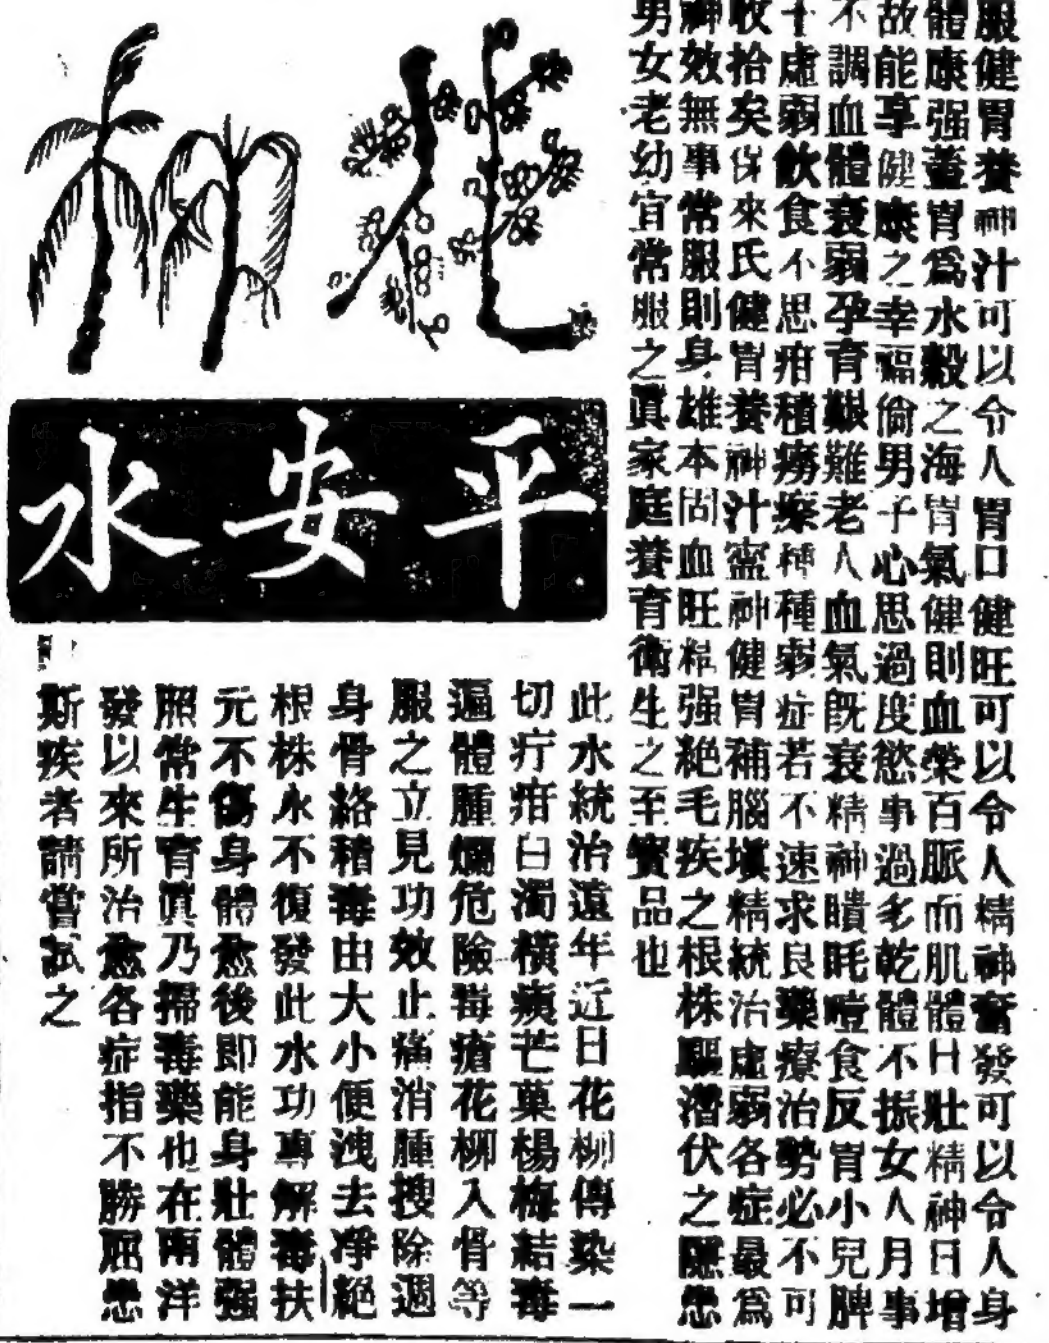 服健胃養神汁可以令人胃口健旺可以令人精神奮發可以令人身
體康强蓋胃爲水穀之海胃氣健則血榮百脈而肌體日壯精神日增
故能享健康之幸福倘男子心思過度慾事過多乾體不振女人月事
不調血體衰弱孕育艱難老人血氣既衰精神瞶眊噎食反胃小兒脾
十虛弱飲食不思疳積癆瘵種種弱症若不速求良藥療治勢必不可
收拾矣保來氏健胃養神汁寧神健胃補腦塡精統治虛弱各症最爲
神效無事常服則身雄本固血旺精强絕毛疾之根株驅潛伏之隱患
男女老幼宜常服之眞家庭養育衛生之至寶品也
花柳
平安水
此水統治遠年近日花柳傳染一
切疔疳白濁橫痃芒菓楊梅結毒
遍體腫爛危險毒瘡花柳入骨等
服之立見功效止痛消腫搜除週
身骨絡積毒由大小便洩去凈絕
根株永不復發此水功專解毒扶
元不傷身體愈後即能身壯體强
照常生育眞乃掃毒藥也在南洋
發以來所治愈各症指不勝屈患
斯疾者請嘗試之